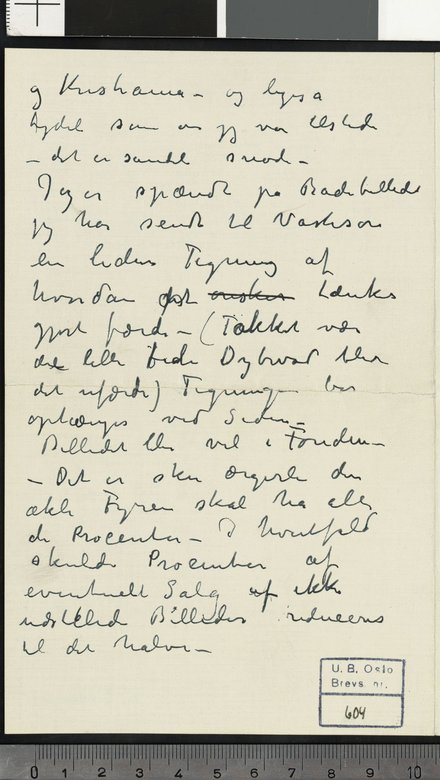 g Kristiania – og ligesa
tydel som om jeg var tilstede
– det er samtl
Jeg er spændt pa Badebilledet
jeg har sendt til
en liden Tegning af
hvordan det ønskes tænkes
gjort færdi – (Takket være
det lille Dybwad blev
det ufærdi) Tegningen bør
ophænges ved Siden –
Billedet blir vel i Fonden –
– Det er den
ækle Fyren skal ha alle
de Procenter – I hvertfald
skulde Procenter af
eventuelt Salg af ikke
udstilled Billeder reduceres
til det halve –
U. B. Oslo
Brevs. nr.
604
0 1 2 3 4 5 6 7 8 9 10